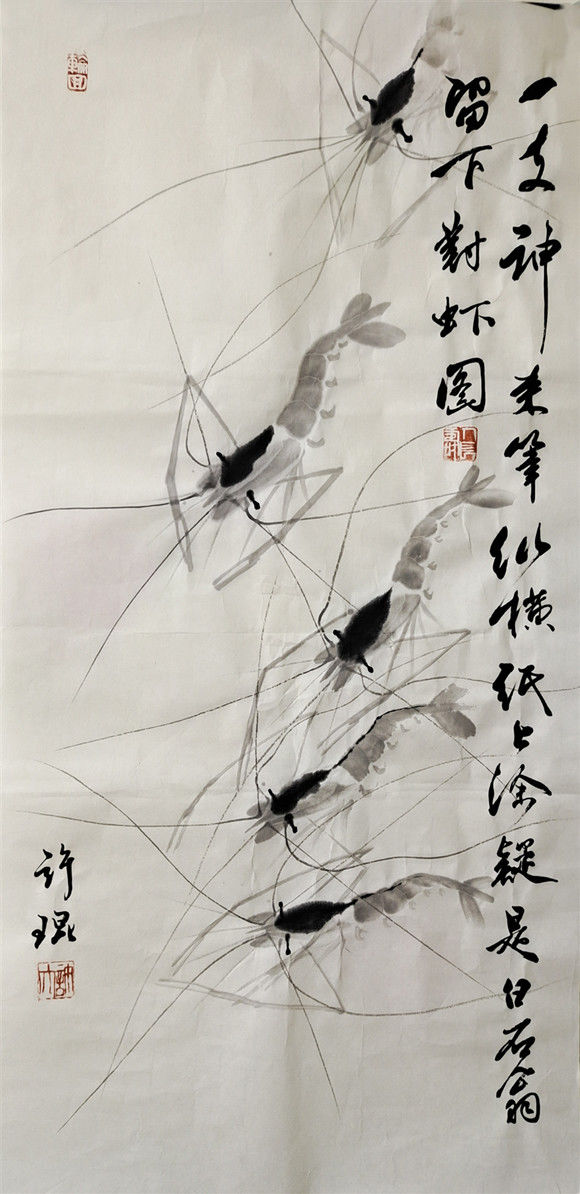 一支神来筆纵横纸上涂疑是白石翁
留下對虾图
许琨